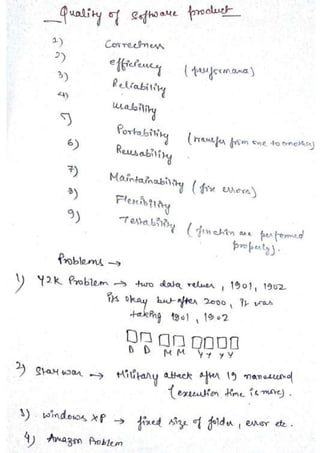 Quality of software product
1) Correctness
2) efficiency (performance)
3) Reliability
4) usability
5) Portability (transfer from one to another)
6) Reusability
7) Maintainability (fix errors)
8) Flexibility
9) Testability (function are performed
properly).
Problems →
1) Y2K Problem → two data values, 1901, 1902
its okay but after 2000, it was
taking 1901, 1902
D D M M Y Y Y Y
2) Star war → Military attack after 19 nanosecond
(execution time is more).
3) windows XP → fixed size of folder, error etc.
4) Amazon Problem